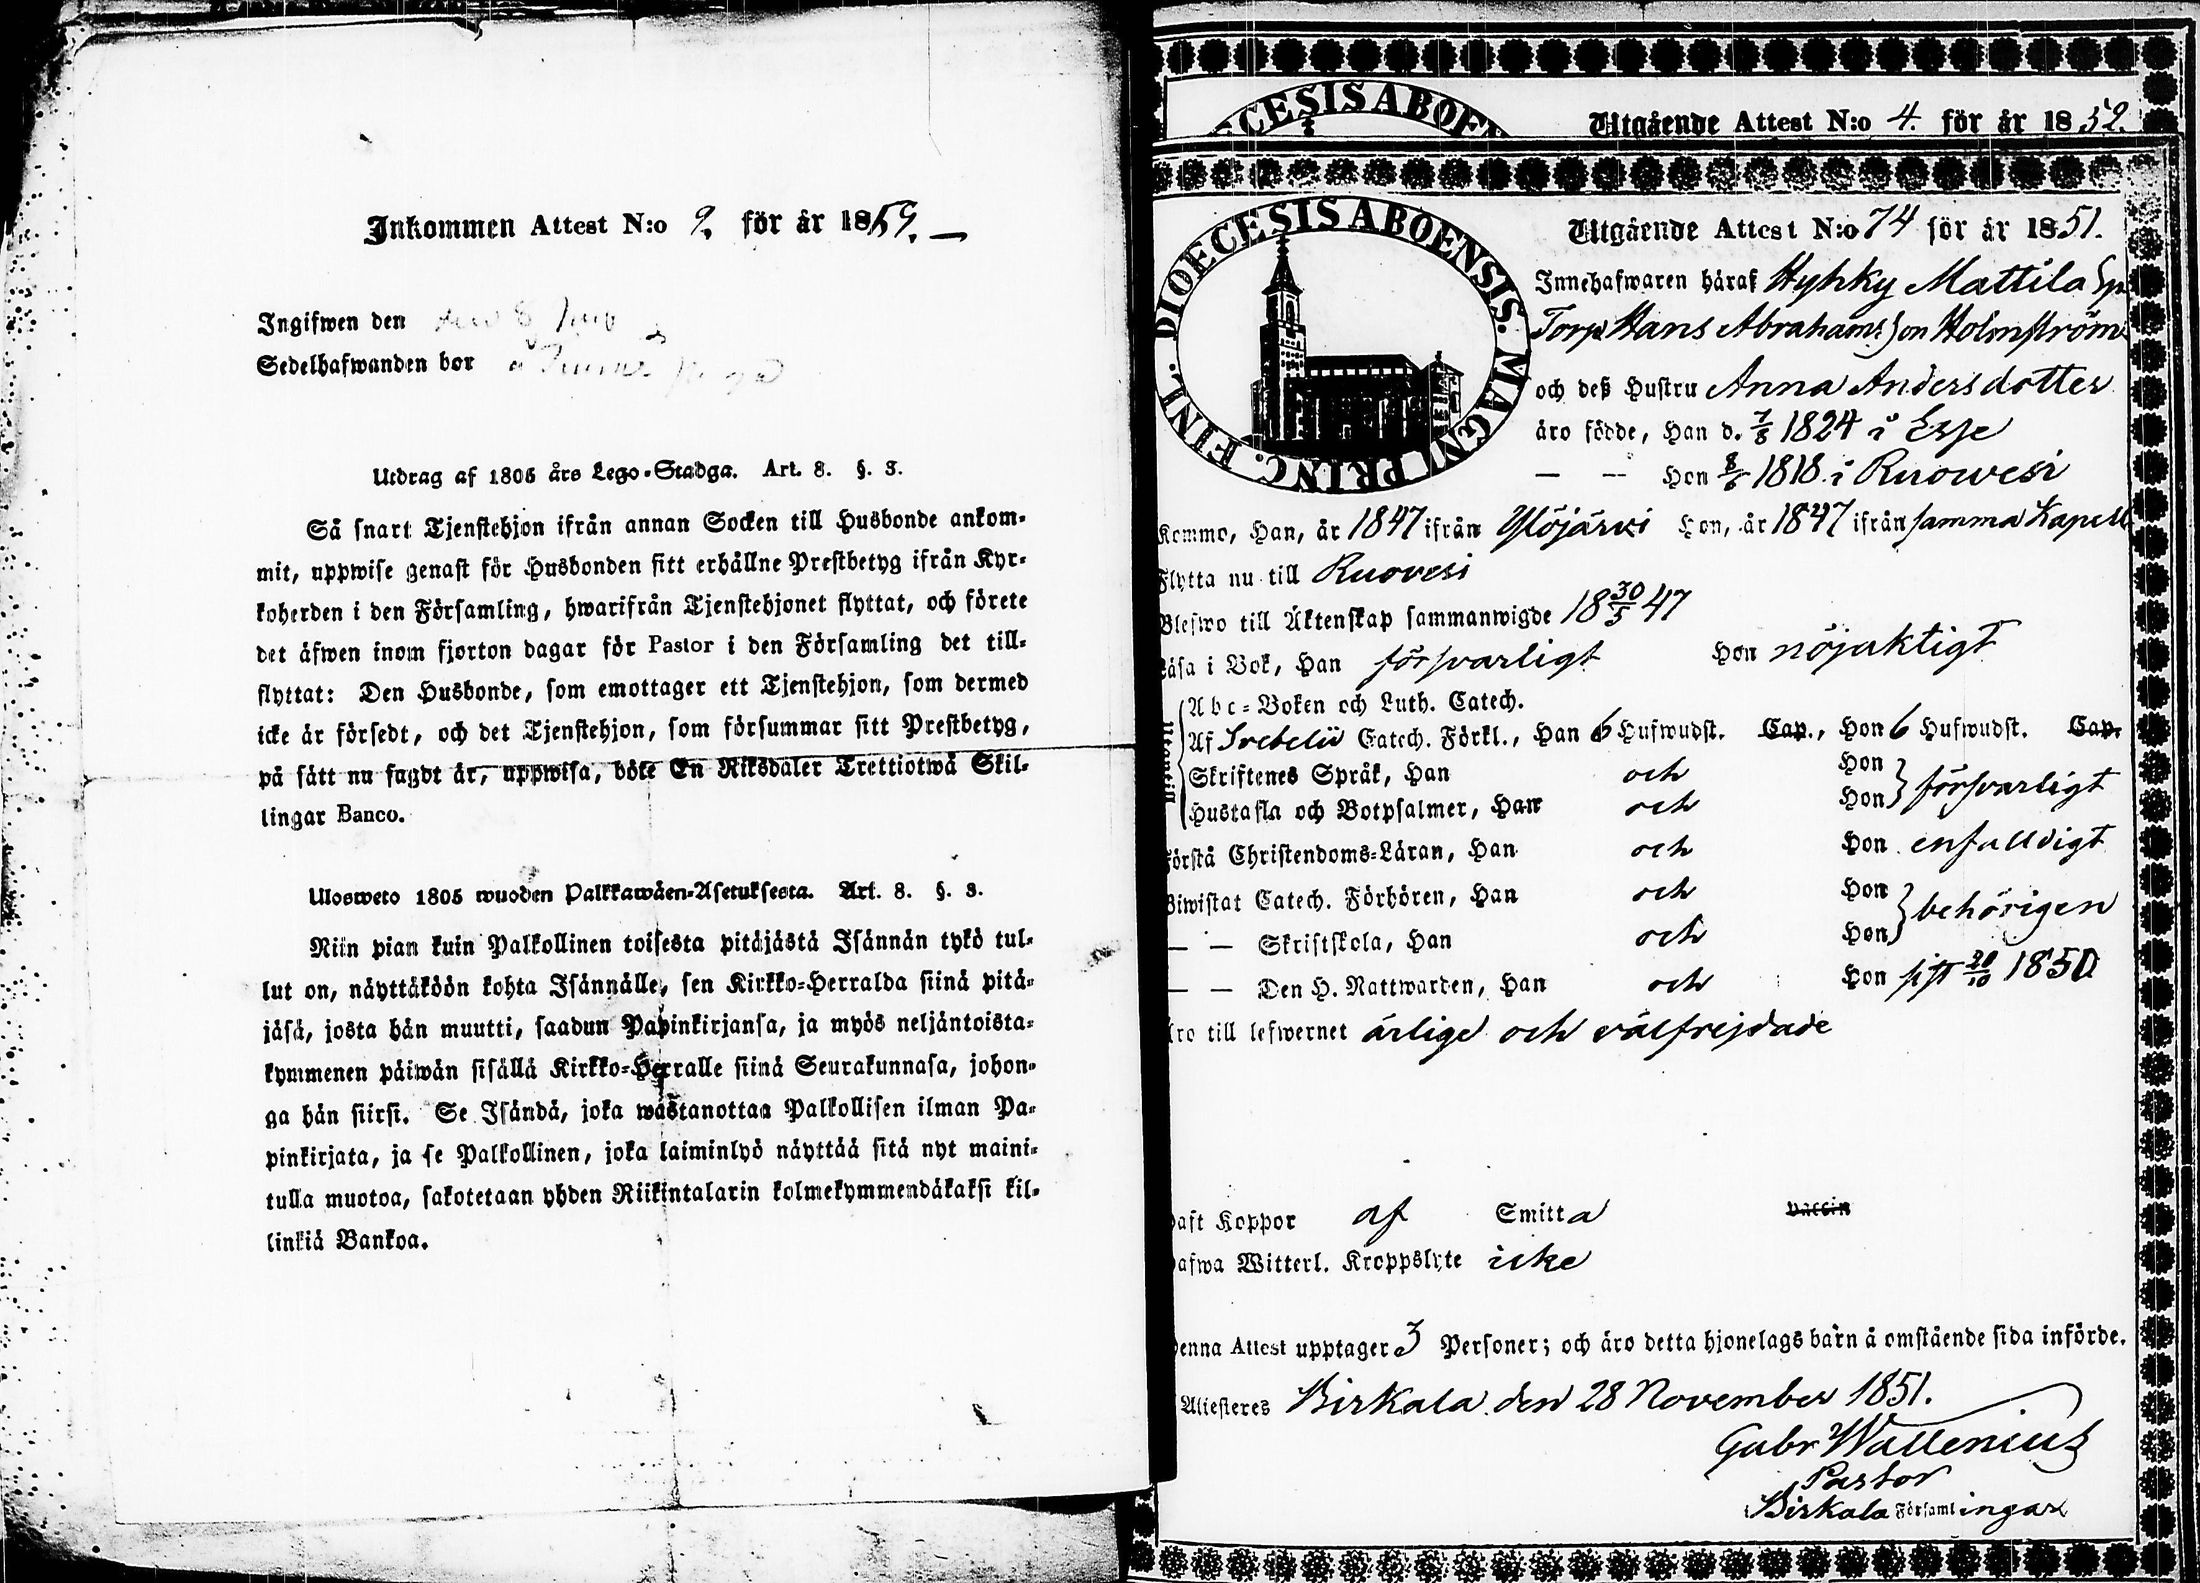 Inkommen Attest N:o 9. för år 1859.
Ingifwen den
Sedelhafwanden bor
Utdrag af 1805 års Lego-Stadga. Art. 8. §. 3.
Så snart Tjenstehjon ifrån annan Socken till Husbonde ankom-
mit, uppwise genast för Husbonden sitt erhållne Prestbetyg ifrån Kyr-
koherden i den Församling, hwarifrån Tjenstehjonet flyttat, och förete
det äfwen inom fjorton dagar för Pastor i den Församling det till-
flyttat: Den Husbonde, som emottager ett Tjenstehjon, som dermed
icke är försedt, och det Tjenstehjon, som försummar sitt Prestbetyg,
på sätt nu sagdt är, uppwisa, böte En Riksdaler Trettiotwå Skil-
lingar Banco.
Ulosweto 1805 wuoden Palkkawäen-Asetuksesta. Art. 8. §. 3.
Niin pian kuin Palkollinen toisesta pitäjästä Isännän tykö tul-
lut on, näyttäköön kohta Isännälle, sen Kirkko-Herralda siinä pitä-
jäsä, josta hän muutti, saadun Papinkirjansa, ja myös neljäntoista-
kymmenen päiwän sisällä Kirkko-Herralle siinä Seurakunnasa, johon-
ga hän siirsi. Se Isändä, joka wastanottaa Palkollisen ilman Pa-
pinkirjata, ja se Palkollinen, joka laiminlyö näyttää sitä nyt maini-
tulla muotoa, sakotetaan yhden Riikintalarin kolmekymmendäkaksi kil-
linkiä Bankoa.
CESIS ABOE
Utgående Attest N:o 4. för år 1852.
DIOECESIS ABOENSIS. MAGNI PRINC. FINL.
Utgående Attest N:o 74 för år 1851.
Innehafwaren häraf Hyhky Mattila
Torp Hans Abrahamsson Holmström
och deß Hustru Anna Andersdotter
äro födde, Han d. 7/8 1824 i Esse
— — Hon 8/6 1818 i Ruowesi
Kommo, Han, år 1847 ifrån Ylöjärwi Hon, år 1847 ifrån samma Kapell
Flytta nu till Ruovesi
Blefwo till Äktenskap sammanwigde 18 30/5 47
Läsa i Bok, Han försvarligt Hon nöjaktigt
Abc-Boken och Luth. Catech.
Af Svebelii Catech. Förkl., Han 6 Hufwudst. Cap., Hon 6 Hufwudst. Cap.
Skriftenes Språk, Han och Hon
Hustafla och Botpsalmer, Han och Hon försvarligt
Förstå Christendoms-Läran, Han och Hon enfalldigt
Biwistat Catech. Förhören, Han och Hon
— — Skriftskola, Han och Hon behörigen
— — Den H. Nattwarden, Han och Hon sist 20/10 1850
Äro till lefwernet ärlige och välfrejdade
Haft Koppor af Smitta vaccin
Hafwa Witterl. Kroppslyte icke
Denna Attest upptager 3 Personer; och äro detta hjonelags barn å omstående sida införde.
Attesteres Birkala den 28 November 1851.
Gabr Wallenius
Pastor
i Birkala Församlingar